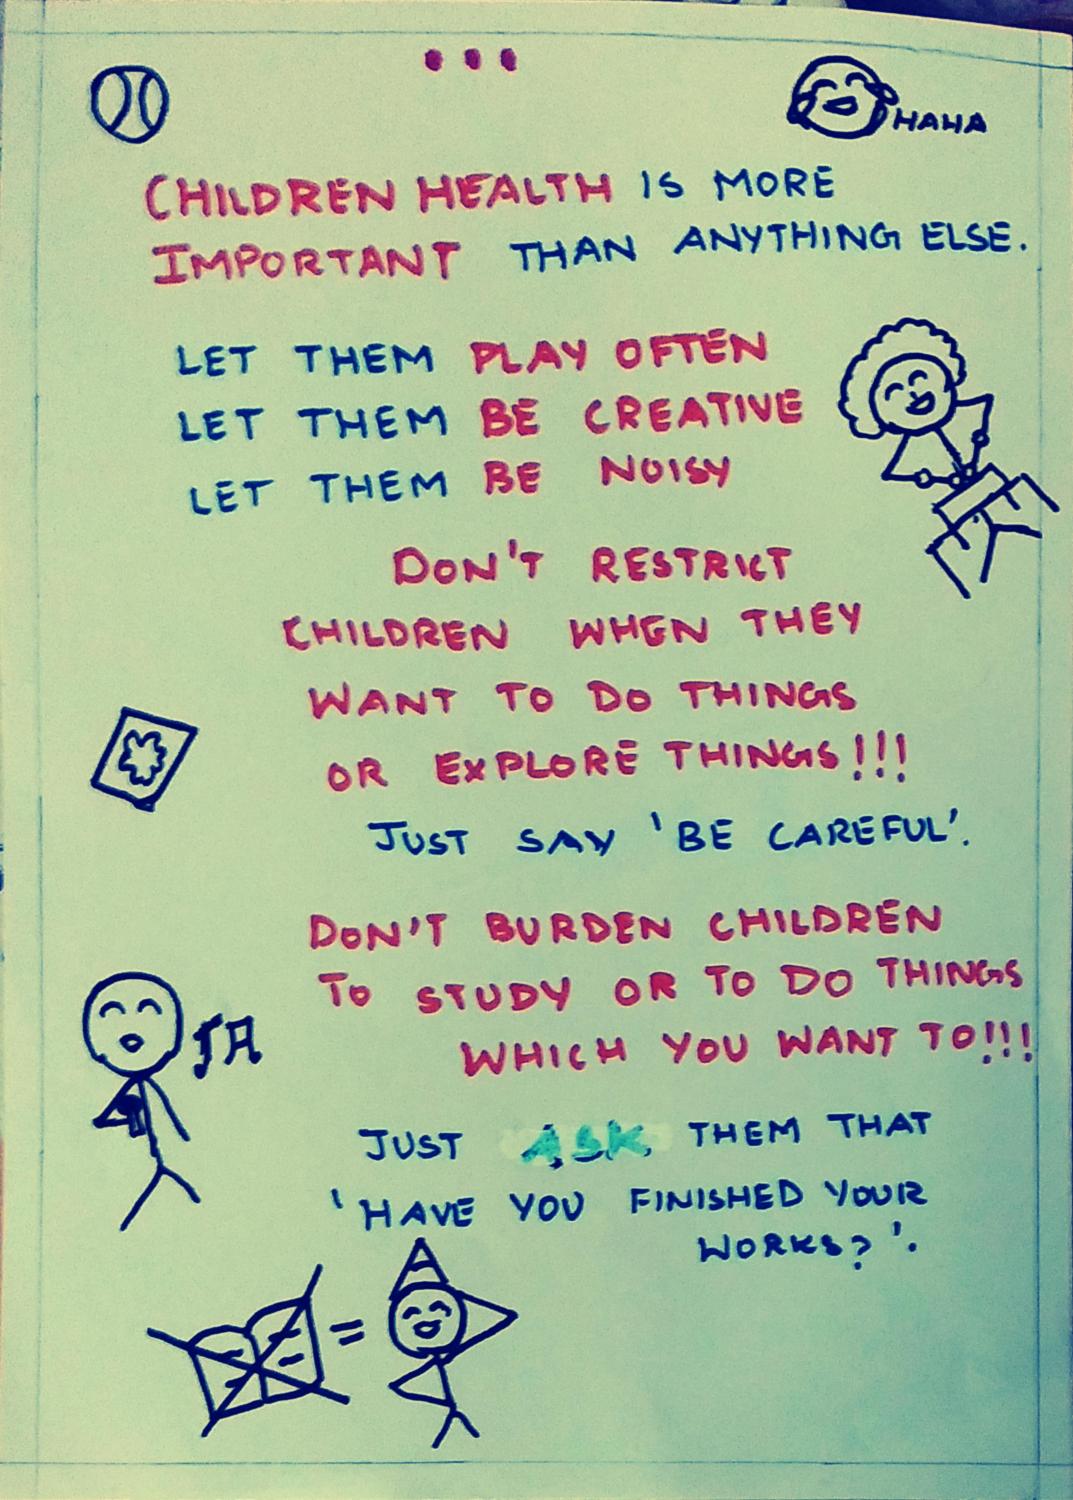 HAHA
CHILDREN HEALTH IS MORE
IMPORTANT THAN ANYTHING ELSE.
LET THEM PLAY OFTEN
LET THEM BE CREATIVE
LET THEM BE NOISY
DON'T RESTRICT
CHILDREN WHEN THEY
WANT TO DO THINGS
OR EXPLORE THINGS!!!
JUST SAY 'BE CAREFUL'.
DON'T BURDEN CHILDREN
TO STUDY OR TO DO THINGS
WHICH YOU WANT TO!!!
JUST ASK THEM THAT
'HAVE YOU FINISHED YOUR
WORKS?'.
=